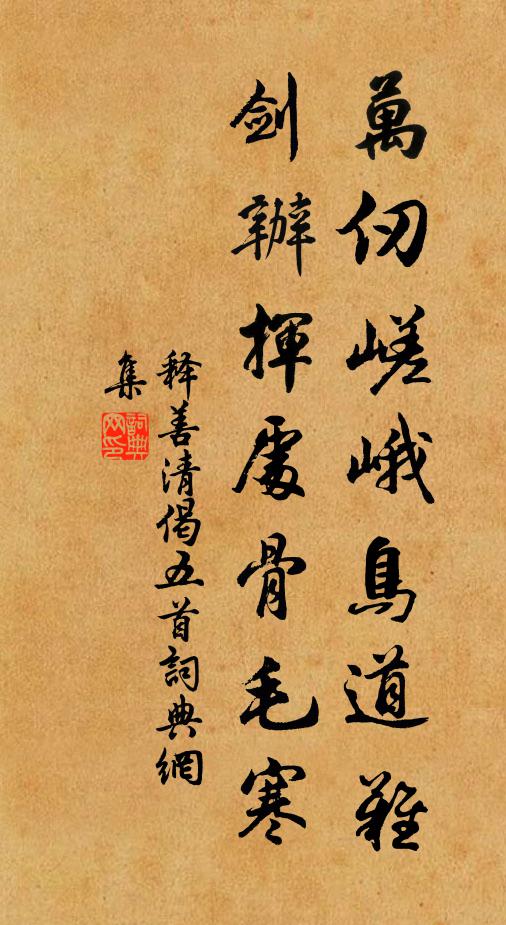 萬仞嵯峨鳥道難
劍辦揮處骨毛寒
释善清偈五首詞典網
集
詞典
网印